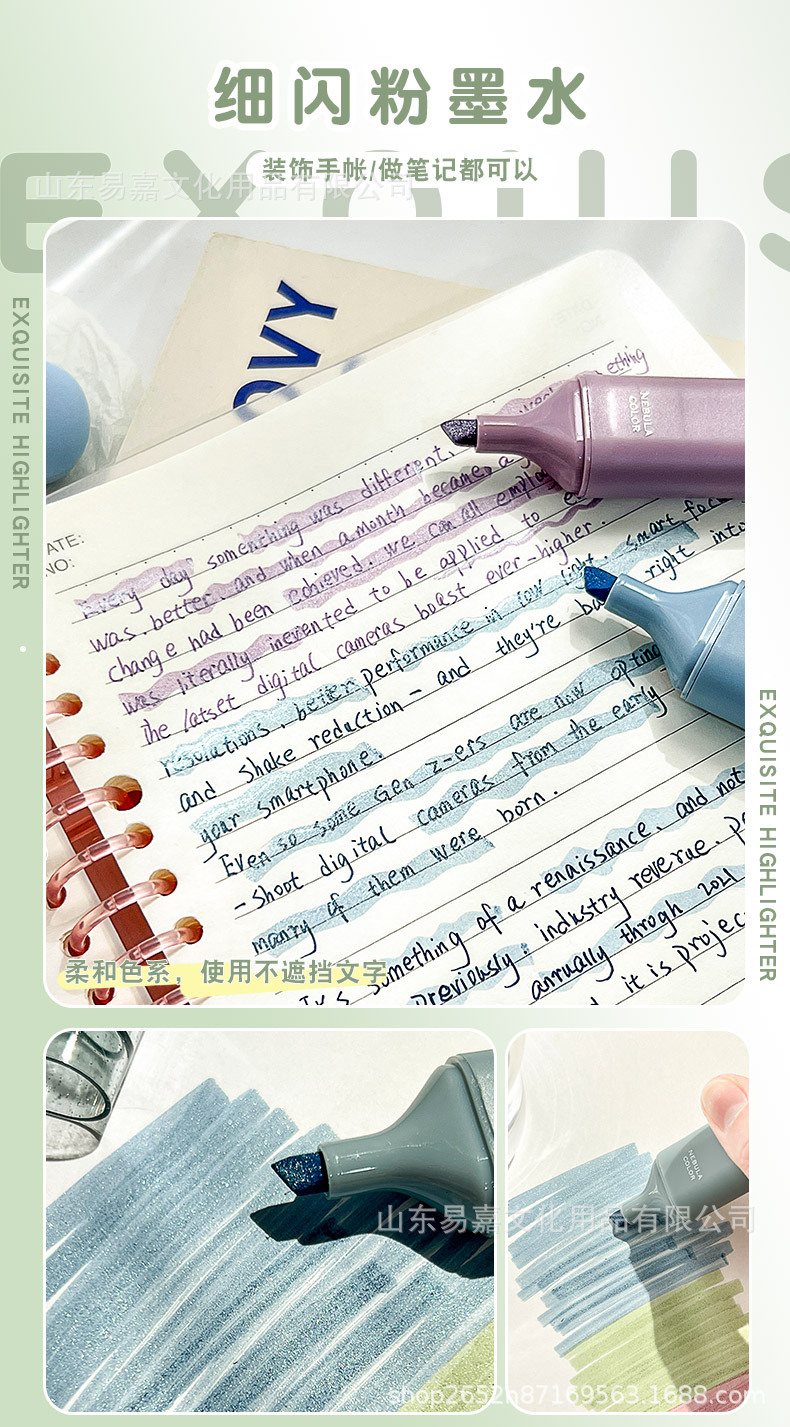 细闪粉墨水
装饰手帐/做笔记都可以
山东易嘉文化用品有限公司
EXQUIS
EXQUISITE HIGHLIGHTER
OVY
ATE:
NO:
NEBULA
COLOR
ething
Every day something was different.
was. better, and when a month became a
change had been cohieved. we can all emplo
was literally inevented to be applied to e
the latset digital cameras boast ever-higher.
resolutions. beter performance in low light. smart foc
and shake reduction - and they're ba right into
your smartphone.
Even so some Gen z-ers are now opting
-shoot digital cameras from the early
manry of them were born.
something of a renaissance, and not
previously. industry reverue. p
anrually throgh 2021
it is projec
EXQUISITE HIGHLIGHTER
柔和色系，使用不遮挡文字
山东易嘉文化用品有限公司
NEBULA
COLOR
shop2652n87169563.1688.com